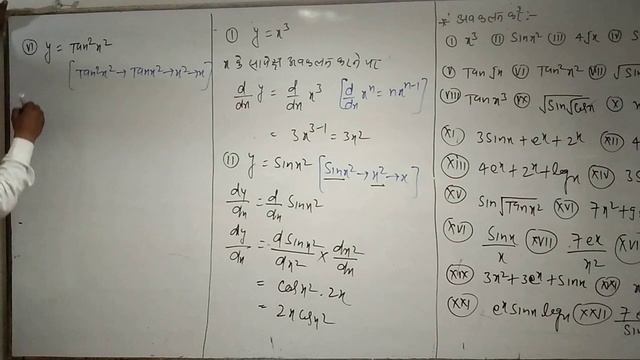 (vi) y = Tan²x²
[Tan²x² → Tanx² → x² → x]
(i) y = x³
x के सापेक्ष अवकलन करने पर
d/dx y = d/dx x³ [d/dx xⁿ = nxⁿ⁻¹]
= 3x³⁻¹ = 3x²
(ii) y = Sinx² [Sinx² → x² → x]
dy/dx = d/dx Sinx²
dy/dx = dSinx²/dx² × dx²/dx
= Cosx² . 2x
= 2x Cosx²
अवकलन करें :-
(i) x³ (ii) Sinx² (iii) 4√x (iv) S
(v) Tan√x (vi) Tan²x² (vii) √Sin
(viii) Tanx³ (ix) √Sin√Cosx (x)
(xi) 3Sinx + eˣ + 2x (xii) 4
(xiii) 4eˣ + 2x + logx (xiv) 3S
(xv) Sin√Tanx² (xvi) 7x² + 9
(xvi) Sinx/x (xvii) 7eˣ/x² (xviii)
(xix) 3x² + 3eˣ + Sinx (xx)
(xxi) eˣ sinx logx (xxii) 7e/Sin